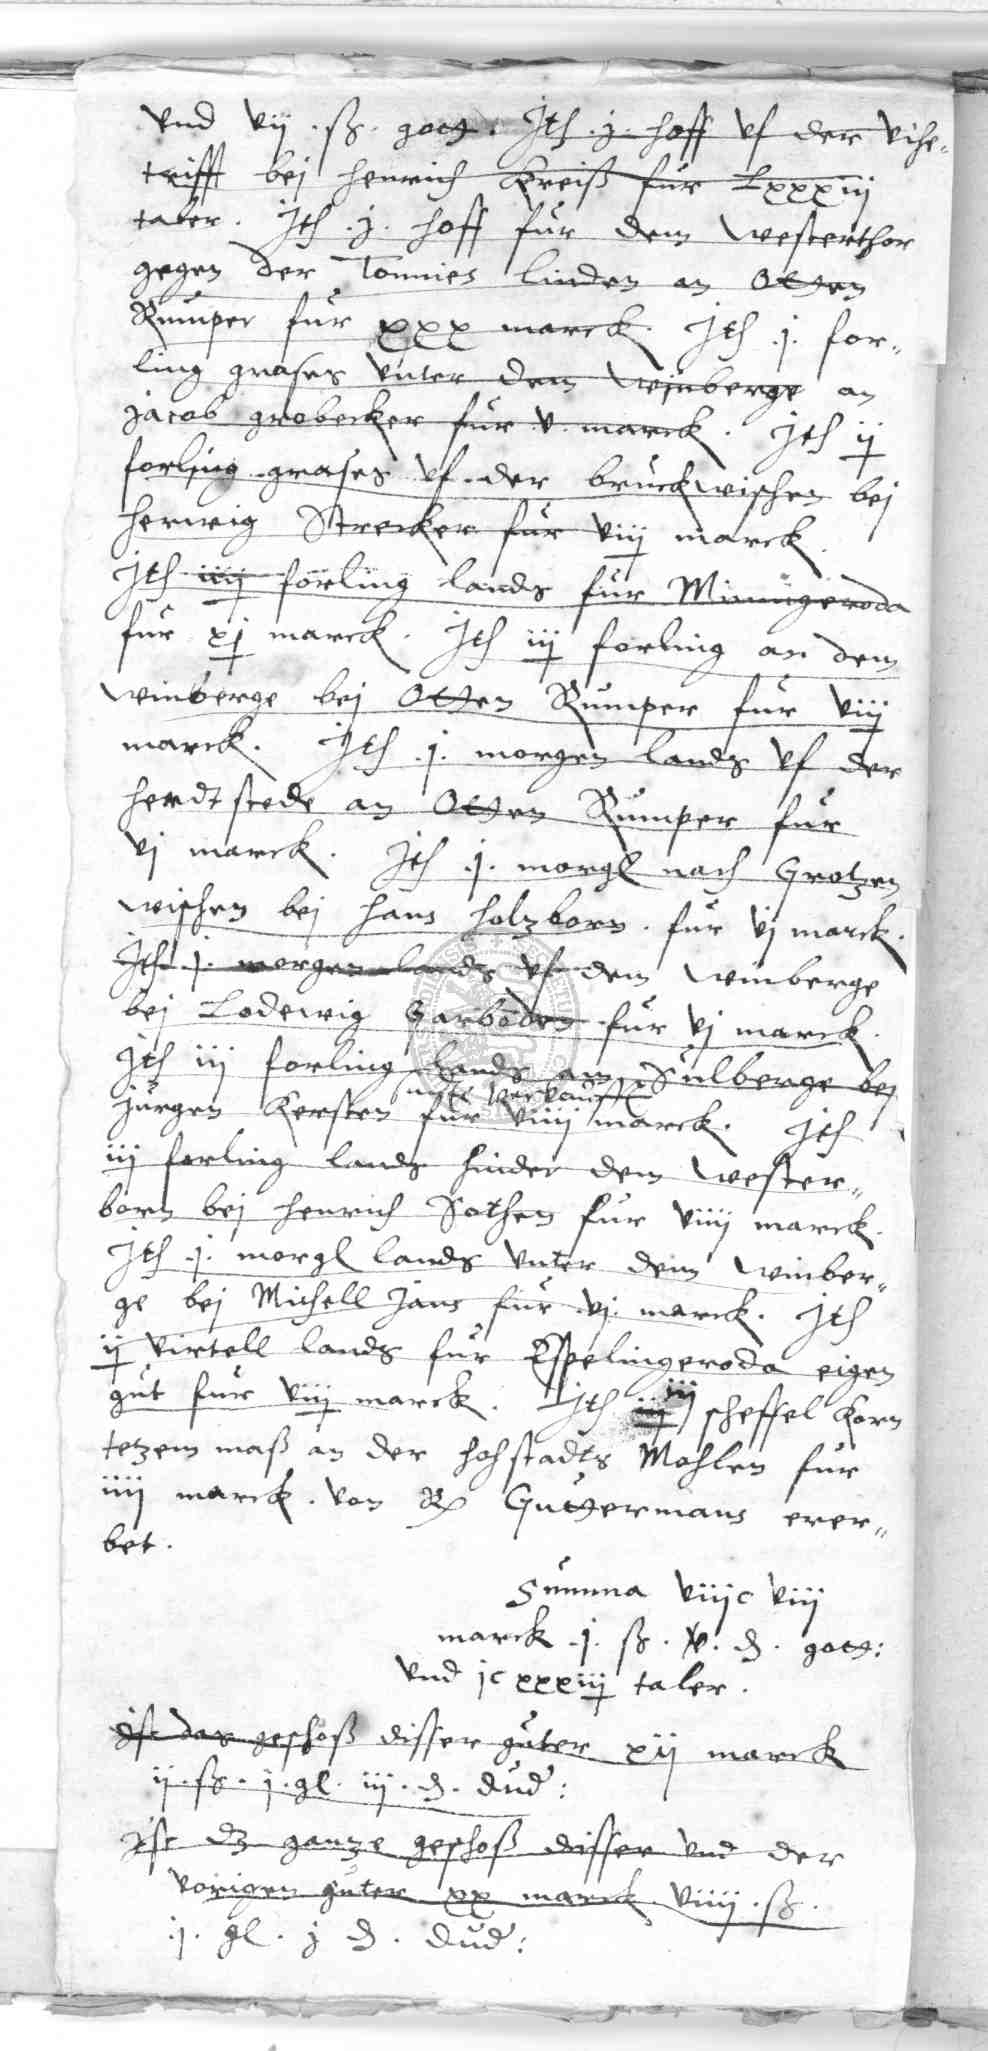 vnd vij . ß . gott . Jth . j . hoff vf der vihe„
trifft bej henrich Kreiß für Lxxxiij
taler . Jth . j . hoff für dem westerthor
gegen der Tonnies linden an Otten
Rumper für xxx marck . Jth . j . for„
ling grases vnter dem winberge an
jacob grobecker für v marck . Jth ij
forling grases vf der bruckwischen bej
herwig Strecker für viij marck .
Jth iiij forling lands für Minnigeroda
für xj marck . Jth iij forling an dem
winberge bej Otten Rumper für viij
marck . Jth . j . morgen lands vf der
herdtstede an Otten Rumper für
vj marck . Jth . j . morgl nach Grotzen
wischen bej hans holzborn . für vj marck .
Jth . j . morgen lands vf dem winberge
bej Lodewig Garboden für vj marck .
Jth iij forling lands am Sulberge bej
verkaufft
jurgen Kersten für viiij marck . Jth
iij forling lands hinder dem wester„
born bej henrich Sothen für viiij marck .
Jth . j . morgl lands vnter dem winber„
ge bej Michell Jans für vj . marck . Jth
ij virtell lands für Espelingeroda eigen
gut für viij marck . Jth iij iij scheffel Korn
tetzem maß an der hohstadts Mohlen für
iiij marck . von Guttermans erer„
bet .
Summa viijc viij
marck . j . ß . v . d . gott :
vnd jc xxxiij taler .
Jst das geschoß disser guter xij marck
ij . ß . j . gl . iij . d . dud :
Jst dz gantze geschoß disser vnd der
vorigen guter xx marck viiij . ß .
. j . gl . j d . dud :